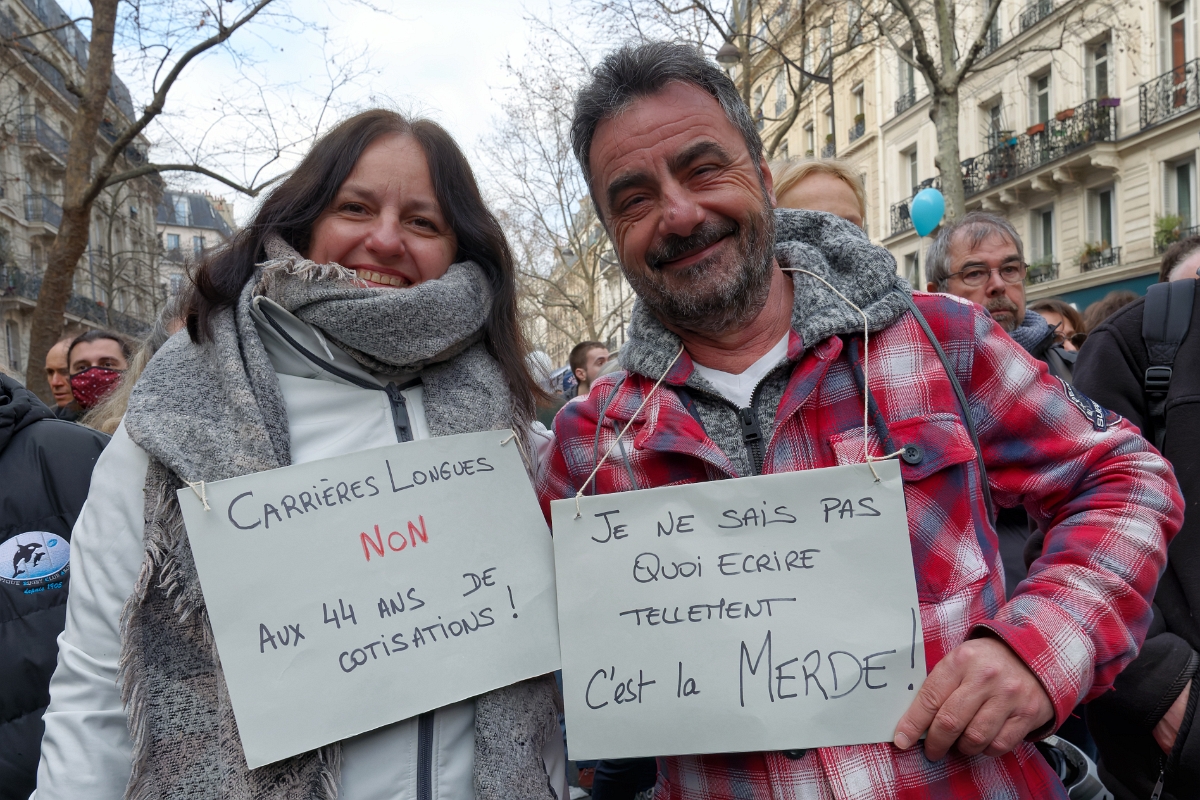 CARRIÈRES LONGUES
NON
AUX 44 ANS DE
COTISATIONS !
JE NE SAIS PAS
QUOI ECRIRE
TELLEMENT
C'est la MERDE !
depuis 1985